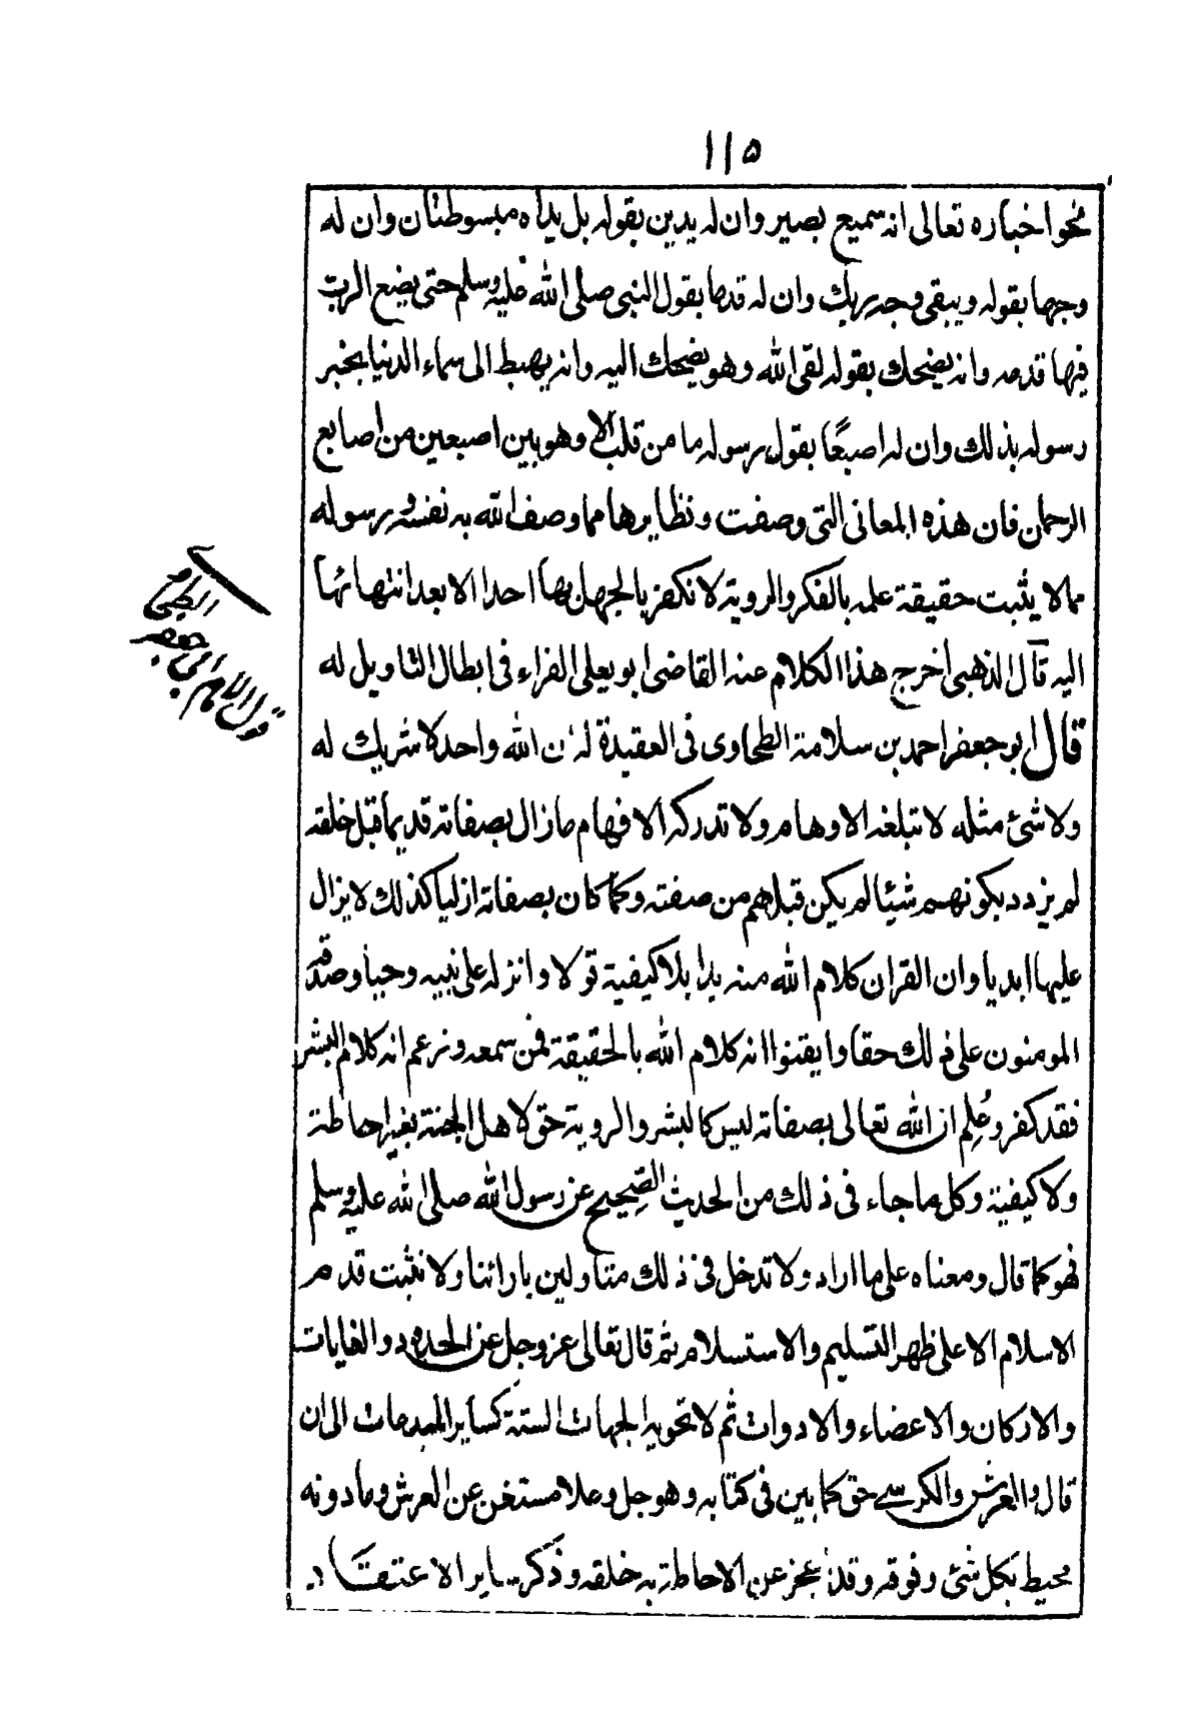 ١١۵
نحو اخباره تعالى انه سميع بصير وان له يدين بقوله بل يداه مبسوطتان وان له
وجها بقوله ويبقى وجه ربك وان له قدما بقول النبى صلى الله عليه وسلم حتى يضع الرب
فيها قدمه وانه يضحك بقوله لقى الله وهو يضحك اليه وانه يهبط الى سماء الدنيا بخبر
رسوله بذلك وان له اصبعًا بقول رسوله ما من قلب الا وهو بين اصبعين من اصابع
الرحمان فان هذه المعانى التى وصفت ونظايرها مما وصف الله به نفسه ورسوله
مما لا يثبت حقيقة علمه بالفكر والروية لا نكفر بالجهل بها احدا الا بعد انتهائها
اليه قال الذهبى اخرج هذا الكلام عنه القاضى ابو يعلى الفراء فى ابطال التاويل له
قال ابو جعفر احمد بن سلامة الطحاوى فى العقيدة له ن الله واحد لا شريك له
ولا شئ مثله لا تبلغه الاوهام ولا تدركه الافهام ما زال بصفاته قديما قبل خلقه
لم يزدد بكونهم شيئا لم يكن قبلهم من صفته وكما كان بصفاته ازليا كذلك لا يزال
عليها ابديا وان القران كلام الله منه بدا بلا كيفية قولا وانزله على نبيه وحيا وصدقه
المومنون على ذلك حقا وايقنوا انه كلام الله بالحقيقة فمن سمعه وزعم انه كلام البشر
فقد كفر وعُلِم ان الله تعالى بصفاته ليس كالبشر والروية حق لاهل الجنة بغير احاطة
ولا كيفية وكل ما جاء فى ذلك من الحديث الصحيح عن رسول الله صلى الله عليه وسلم
فهو كما قال ومعناه على ما اراد ولا تدخل فى ذلك متاولين بارائنا ولا نثبت قدم
الاسلام الا على ظهر التسليم والاستسلام ثم قال تعالى عز وجل عن الحدود والغايات
والاركان والاعضاء والادوات ثم لا تحويه الجهات الستة كساير المبدعات الى ان
قال والعرش والكرسى حق كما بين فى كتابه وهو جل وعلا مستغن عن العرش وما دونه
محيط بكل شئ وفوقه وقد عجز عن الاحاطة به خلقه وذكر ساير الاعتقاد
قول الامام ابى جعفر
الطحاوى